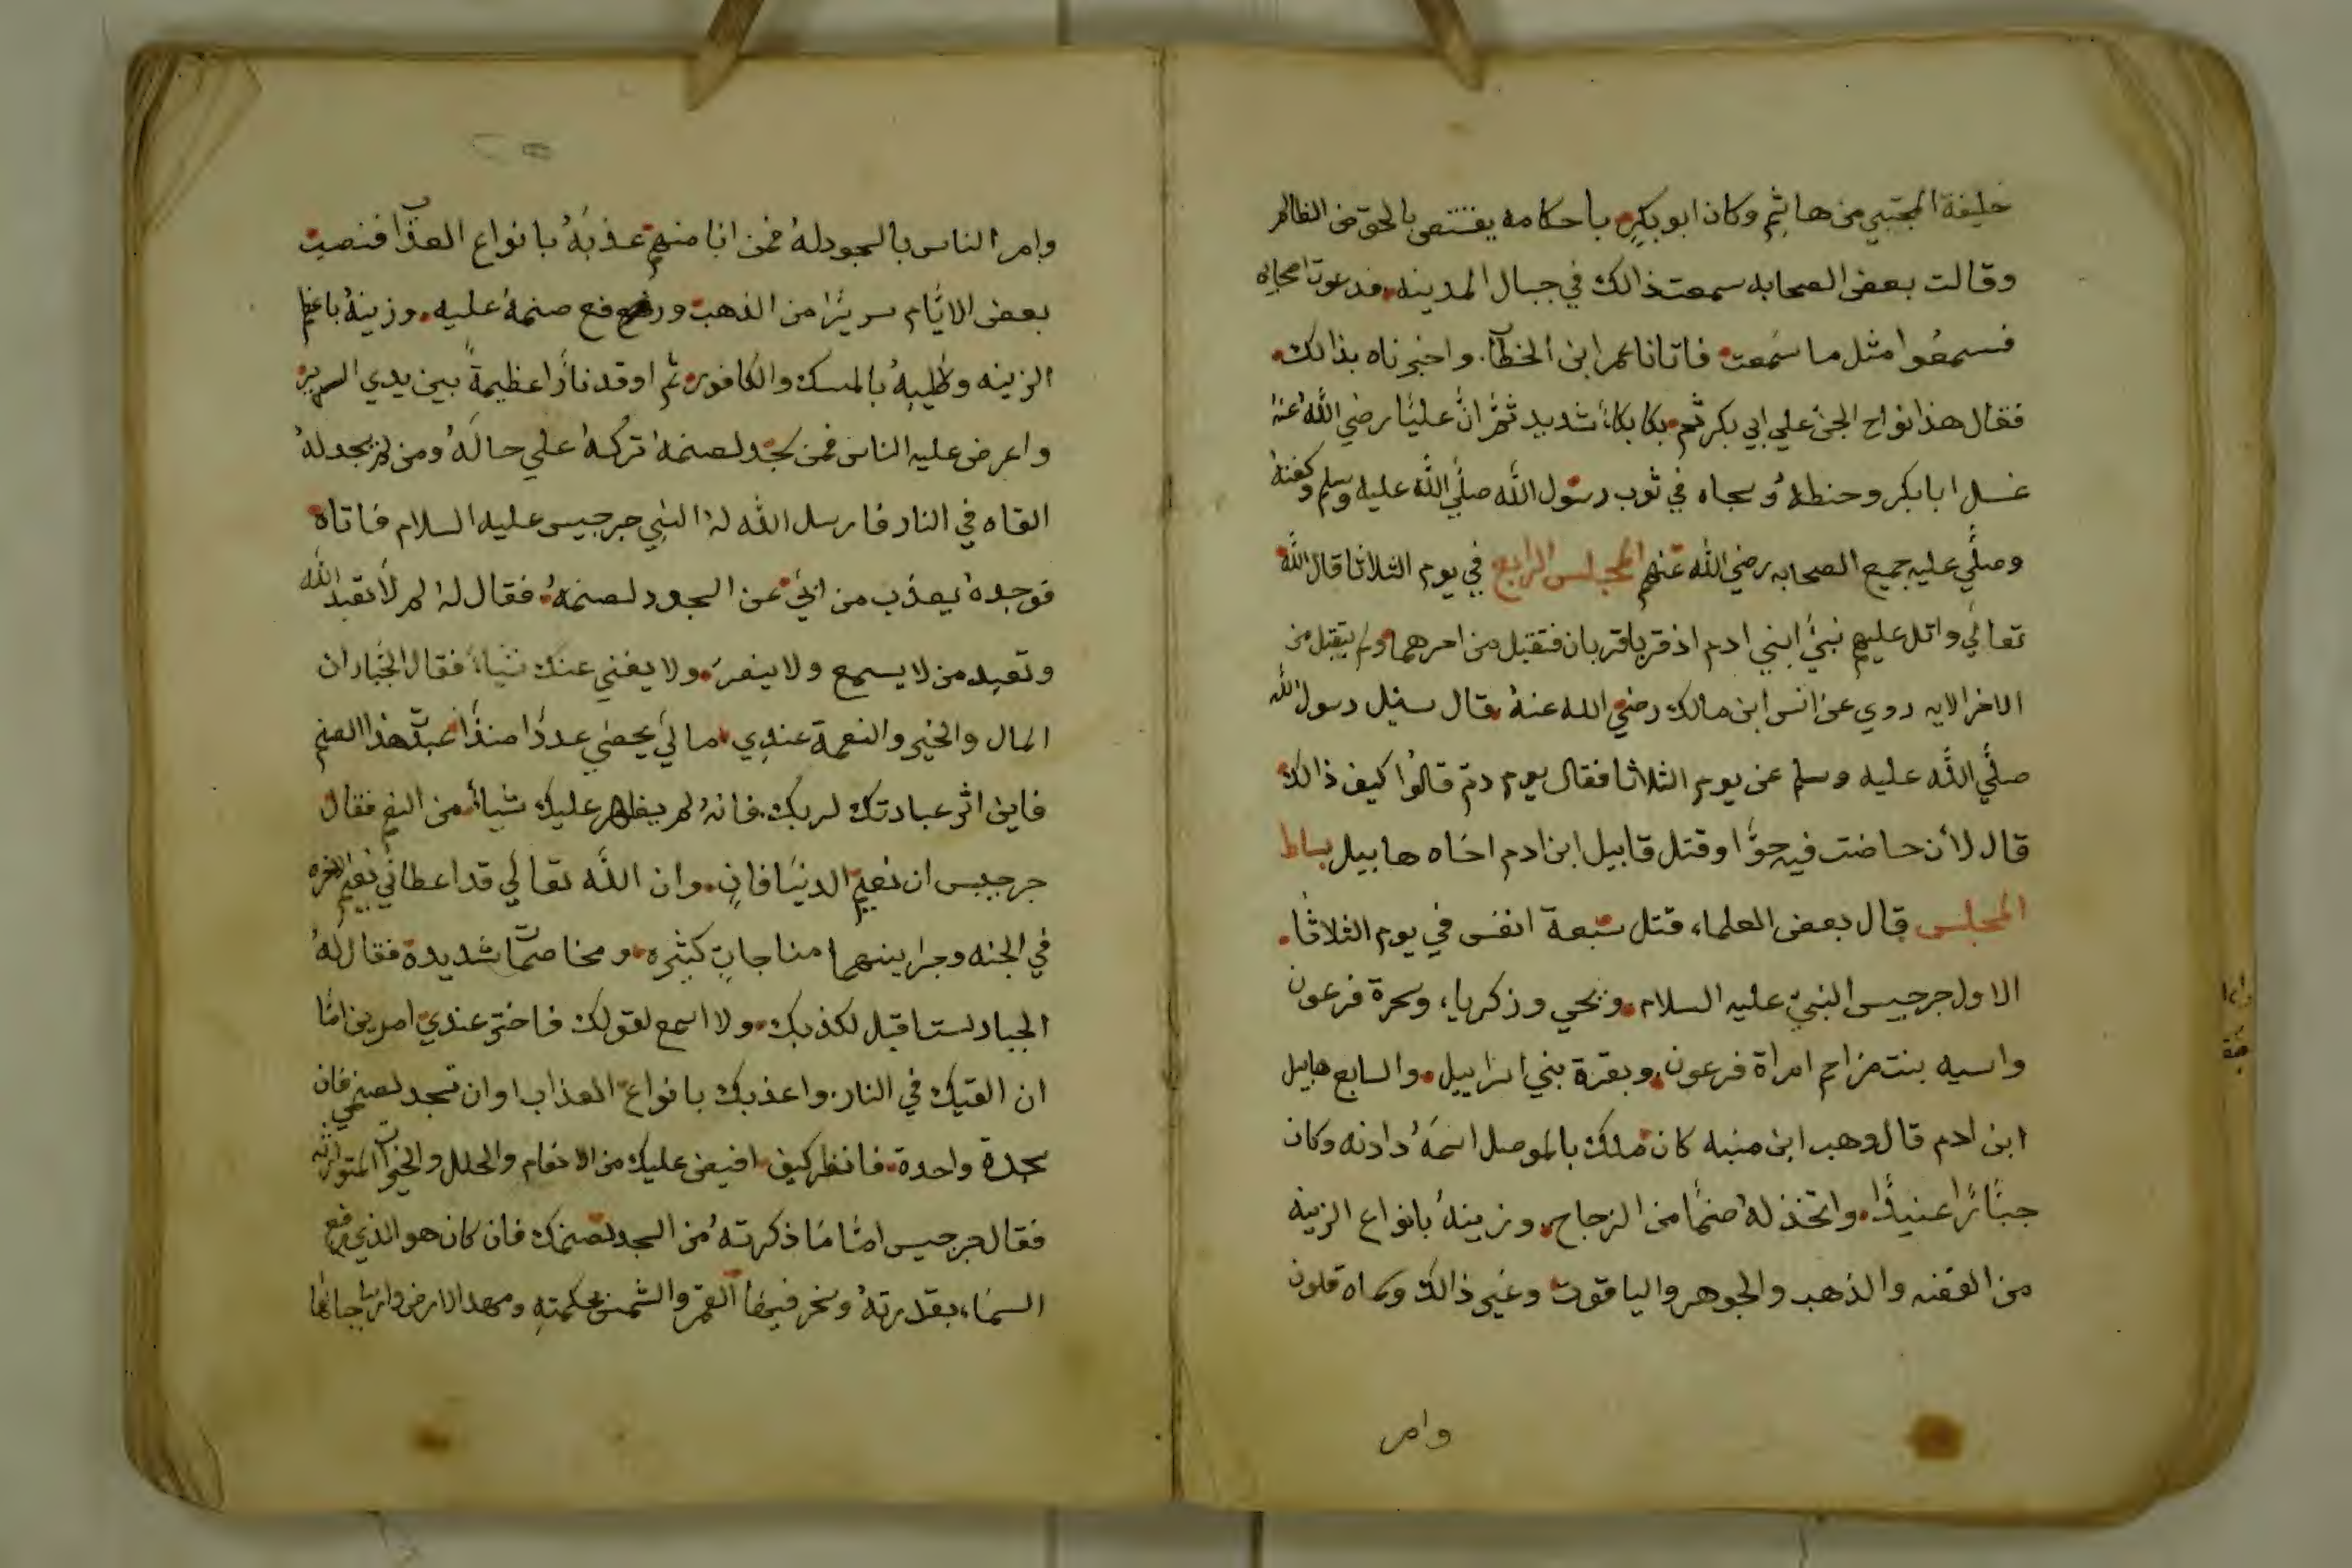 خليفة المجتبي من هاشم وكان ابو بكر باحكامه يقتص بالحق من الظالم
وقالت بعض الصحابه سمعت ذالك في جبال المدينه فدعوت اصحابه
فسمعوا مثل ما سمعت فاتانا عمر ابن الخطاب واخبرناه بذالك
فقال هذا نواح الجن علي ابي بكر ثم بكا بكاء شديد ثمر ان عليا رضي الله عنه
غسل ابا بكر وحنطه وسجاه في ثوب رسول الله صلي الله عليه وسلم وكفنه
وصلي عليه جميع الصحابه رضي الله عنهم المجلس الرابع في يوم الثلاثا قال الله
تعالي واتل عليهم نبي ابني ادم اذ قربا قربان فتقبل من احدهما ولم يتقبل من
الاخر الايه روي عن انس ابن مالك رضي الله عنه قال سئل رسول الله
صلي الله عليه وسلم عن يوم الثلاثا فقال يوم دم قالوا كيف ذالك
قال لان حاضت فيه حوا وقتل قابيل ابن ادم اخاه هابيل بساط
المجلس قال بعض العلماء قتل سبعة انفس في يوم الثلاثا
الاول جرجيس النبي عليه السلام ويحي وزكرياء وسحرة فرعون
واسيه بنت مزاحم امراة فرعون وبقرة بني اسراييل والسابع هابيل
ابن ادم قال وهب ابن منبه كان ملك بالموصل اسمه دادنه وكان
جبائرا عنيدا واتخذ له صنما من الزجاج وزينه بانواع الزينه
من الفضه والذهب والجوهر والياقوت وغير ذالك وسماه قلون
وامر
وامر الناس بالسجود له فمن ابا منهم عذبه بانواع العذاب فنصبت
بعض الايام سريرا من الذهب ورفع صنمه عليه وزينه باعظم
الزينه وطيبه بالمسك والكافور ثم اوقد نارا عظيمة بين يدي السرير
واعرض عليه الناس فمن سجد لصنمه تركه علي حاله ومن لم يسجد له
القاه في النار فارسل الله له النبي جرجيس عليه السلام فاتاه
فوجده يعذب من ابي عن السجود لصنمه فقال له لم لا تعبد الله
وتعبد من لا يسمع ولا ينصر ولا يغني عنك شياء فقال الجبار ان
المال والخير والنعمة عندي مالي يحصي عددا منذ اعبد هذا الصنم
فاين اثر عبادتك لربك فانه لم يظهر عليك شياء من النعم فقال
جرجيس ان نعيم الدنيا فان وان الله تعالي قد اعطاني نعيم الاخره
في الجنه وجرا بينهما مناجات كثيره ومخاصمات شديدة فقال له
الجبار لست اقبل لكذبك ولا اسمع لقولك فاختر عندي امرين اما
ان القيك في النار واعذبك بانواع العذاب او ان تسجد لصنمي فان
سجدة واحدة فانظر كيف افيض عليك من الانعام والحلل والخيرات المتواتره
فقال جرجيس اما ما ذكرته من السجد لصنمك فان كان هو الذي رفع
السماء بقدرته وسخر فيها القمر والشمس بحكمته ومهد الارض وارسا جبالها